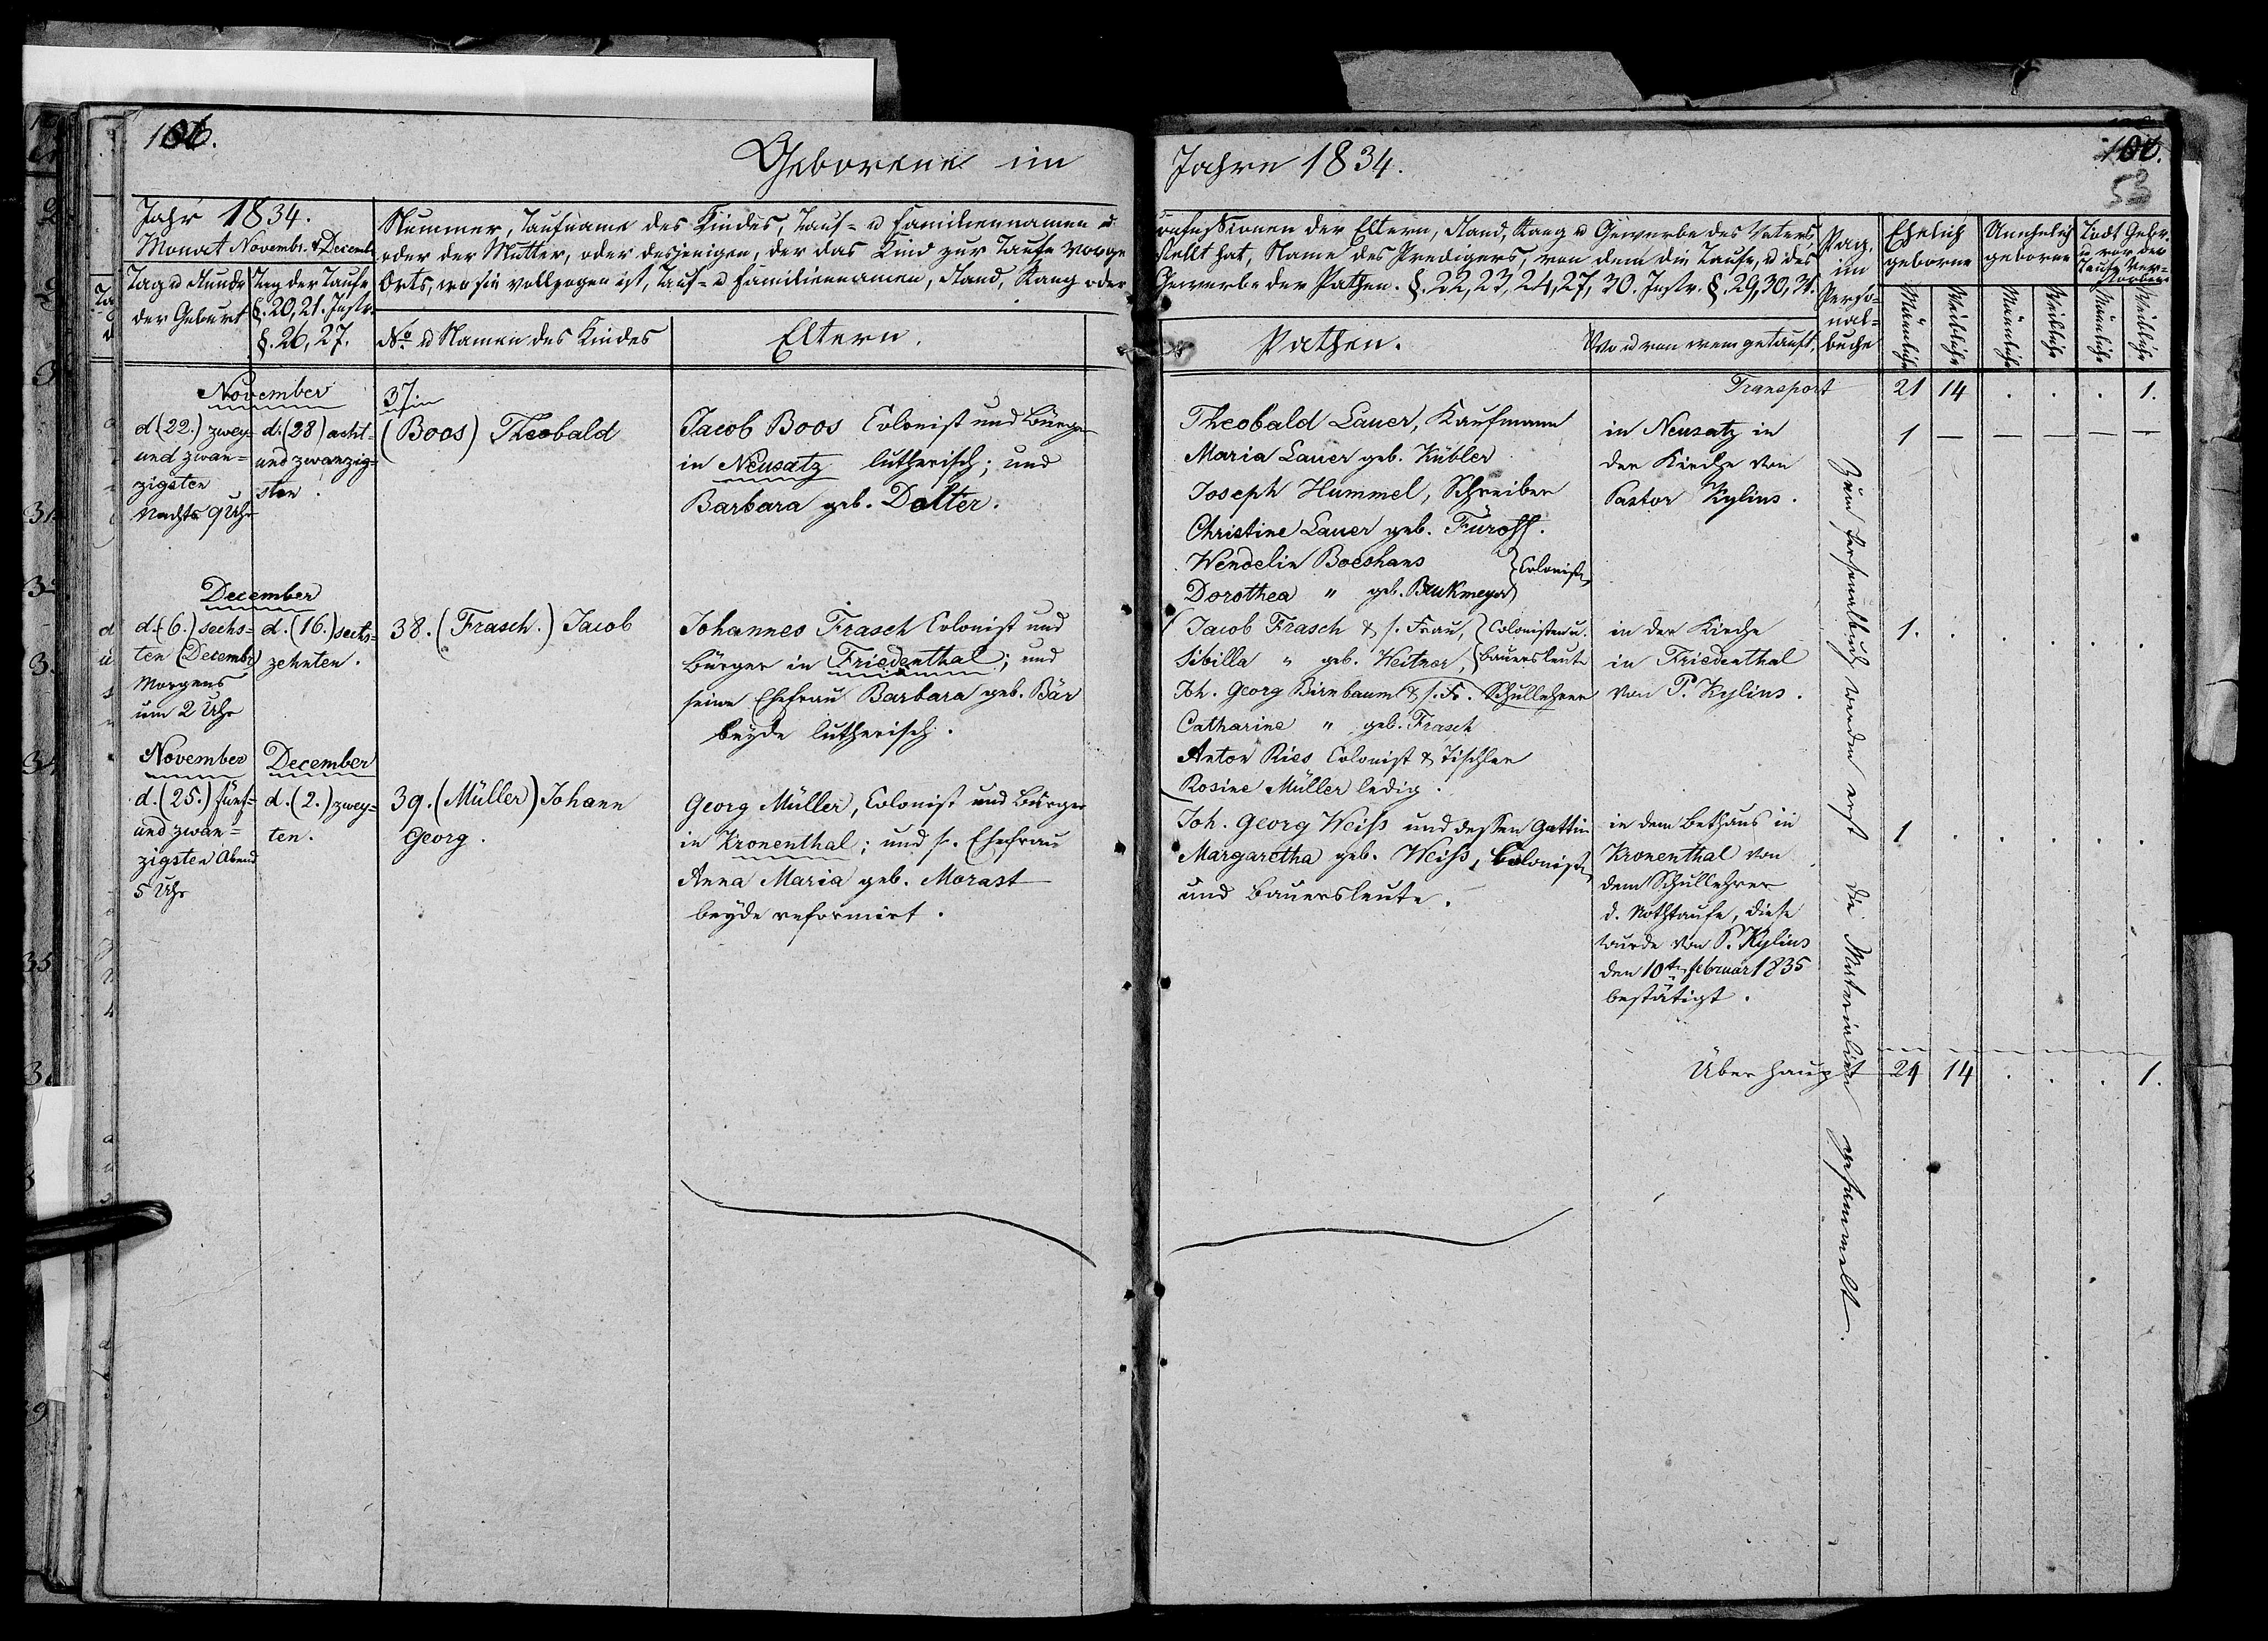 106.
Geborene im
Jahre 1834.
106.
53
Jahr 1834.
Monat Novembr. & Decemb.
Tag u Stunde
der Geburt
Tag der Taufe
§. 20, 21. Instr.
§. 26, 27.
Nummer, Taufname des Kindes, Tauf- u Familiennamen u
oder der Mutter, oder desjenigen, der das Kind zur Taufe vorge
Orts, wo sie vollzogen ist, Tauf- u Familiennamen, Stand, Rang oder
No. u Namen des Kindes
Eltern.
Confessionen der Eltern, Stand, Rang u Gewerbe des Vaters,
stellt hat, Name des Predigers, von dem die Taufe, u des
Gewerbe der Pathen. §. 22, 23, 24, 27, 30. Instr. §. 29, 30, 31.
Pathen.
Wo u von wem getauft.
Pag.
im
Perso-
nal-
buche
Ehelich
geborne
Unehelich
geborne
Todt Gebr.
u vor der
Taufe Ver-
storbene
Männliche
Weibliche
Männliche
Weibliche
Männliche
Weibliche
Transport 21 14 . . . 1.
November
d (22.) zwey-
und zwan-
zigsten
Nachts 9 Uhr
d. (28) acht-
und zwanzig-
sten.
37
(Boos) Theobald
Jacob Boos Colonist und Bürger
in Neusatz lutherisch; und
Barbara geb. Dolter.
Theobald Lauer, Kaufmann
Maria Lauer geb. Kübler
Joseph Hummel, Schreiber
Christine Lauer geb. Füroff.
Wendelin Boeshans
Dorothea " geb. Brukmeyer
Colonisten
in Neusatz in
der Kirche von
Pastor Kylius.
1 — — — — —
December
d. (6.) sechs-
ten (Decembr)
Morgens
um 2 Uhr
d. (16.) sechs-
zehnten.
38. (Frasch.) Jacob
Johannes Frasch Colonist und
Bürger in Friedenthal; und
seine Ehefrau Barbara geb. Bär
beyde lutherisch.
Jacob Frasch & s. Frau, Colonisten u.
Sibilla " geb. Weitner, Bauersleute
Joh. Georg Birnbaum & s. Fr. Schullehrer
Catharine " geb. Frasch
Anton Ries Colonist & Tischler
Rosine Müller ledig.
in der Kirche
in Friedenthal
von P. Kylius.
1. . . . . .
November
d. (25.) fünf-
und zwan-
zigsten Abend
5 Uhr
December
d. (2.) zwey-
ten.
39. (Müller) Johann
Georg.
Georg Müller, Colonist und Bürger
in Kronenthal; und s. Ehefrau
Anna Maria geb. Morast
beyde reformirt.
Joh. Georg Weiß und dessen Gattin
Margaretha geb. Weiß, Colonisten
und Bauersleute.
in dem Bethaus in
Kronenthal von
dem Schullehrer
d. Nothtaufe, diese
wurde von P. Kylius
den 10ten Februar 1835
bestätigt.
1 . . . . .
Zum Personalbuch werden erst die Materialien gesammelt.
Überhaupt 24 14 . . . 1.